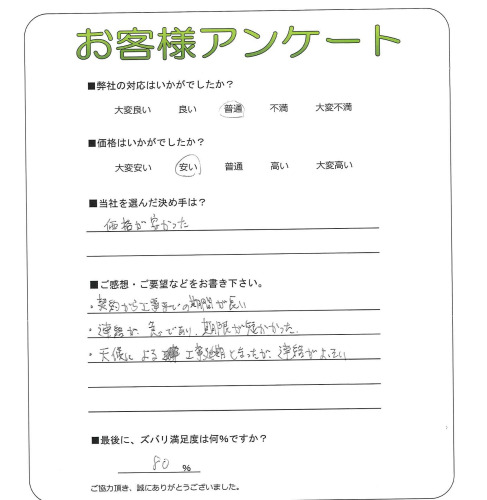 お客様アンケート
■弊社の対応はいかがでしたか？
大変良い 良い 普通 不満 大変不満
■価格はいかがでしたか？
大変安い 安い 普通 高い 大変高い
■当社を選んだ決め手は？
価格が安かった
■ご感想・ご要望などをお書き下さい。
・契約から工事までの期間が長い
・連絡が急であり、期限が短かかった。
・天候による 工事延期となったが、連絡が
■最後に、ズバリ満足度は何％ですか？
80 ％
ご協力頂き、誠にありがとうございました。